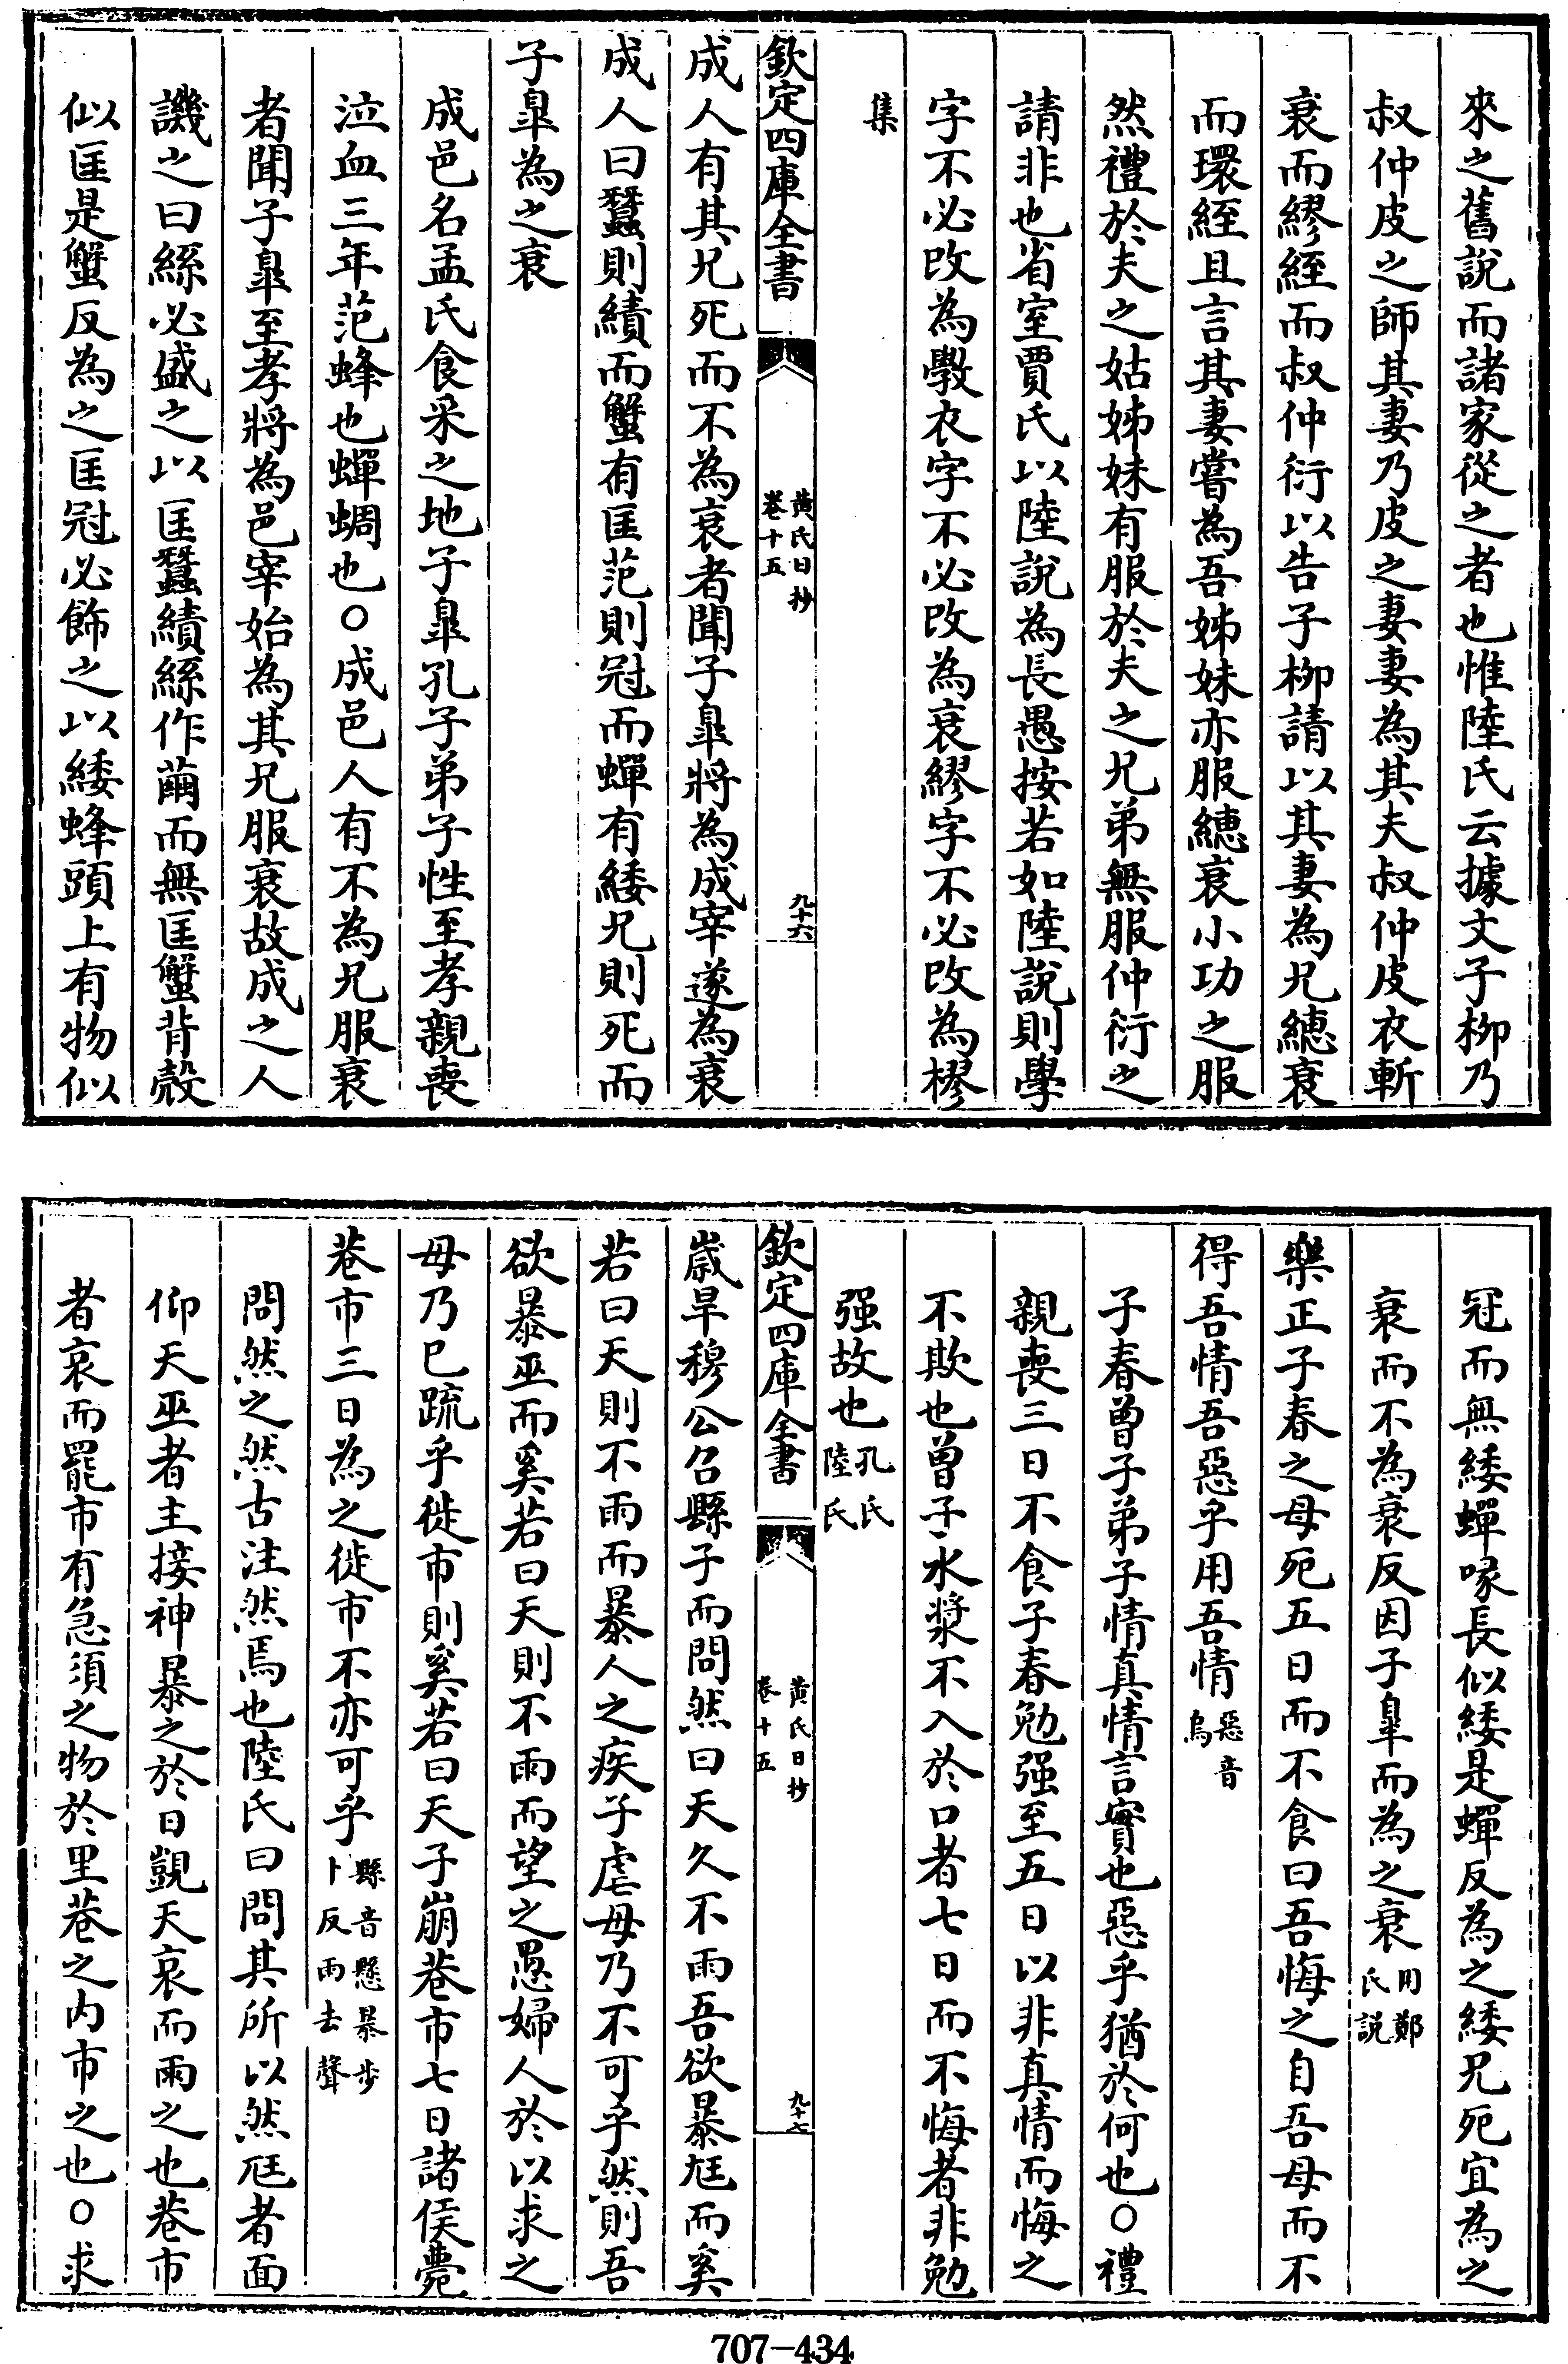 來之舊說而諸家從之者也惟陸氏云據文子柳乃
叔仲皮之師其妻乃皮之妻妻為其夫叔仲皮衣斬
衰而繆絰而叔仲衍以告子柳請以其妻為兄繐衰
而環絰且言其妻嘗為吾姊妹亦服繐衰小功之服
然禮於夫之姑姊妹有服於夫之兄弟無服仲衍之
請非也省室賈氏以陸說為長愚按若如陸說則學
字不必改為斆衣字不必改為衰繆字不必改為樛
集
欽定四庫全書
黃氏日抄
卷十五
九十六
成人有其兄死而不為衰者聞子臯將為成宰遂為衰
成人曰蠶則績而蟹有匡范則冠而蟬有緌兄則死而
子臯為之衰
成邑名孟氏食采之地子臯孔子弟子性至孝親喪
泣血三年范蜂也蟬蜩也○成邑人有不為兄服衰
者聞子臯至孝將為邑宰始為其兄服衰故成之人
譏之曰絲必盛之以匡蠶績絲作繭而無匡蟹背殼
似匡是蟹反為之匡冠必飾之以緌蜂頭上有物似
冠而無緌蟬喙長似緌是蟬反為之緌兄死宜為之
衰而不為衰反因子臯而為之衰用鄭氏說
樂正子春之母死五日而不食曰吾悔之自吾母而不
得吾情吾惡乎用吾情惡音烏
子春曾子弟子情真情言實也惡乎猶於何也○禮
親喪三日不食子春勉强至五日以非真情而悔之
不欺也曾子水漿不入於口者七日而不悔者非勉
强故也孔氏陸氏
欽定四庫全書
黃氏日抄
卷十五
九十七
歲旱穆公召縣子而問然曰天久不雨吾欲暴尫而奚
若曰天則不雨而暴人之疾子虐毋乃不可乎然則吾
欲暴巫而奚若曰天則不雨而望之愚婦人於以求之
毋乃已疏乎徙市則奚若曰天子崩巷市七日諸侯薨
巷市三日為之徙市不亦可乎縣音懸暴步卜反雨去聲
問然之然古注然焉也陸氏曰問其所以然尫者面
仰天巫者主接神暴之於日覬天哀而雨之也巷市
者哀而罷市有急須之物於里巷之内市之也○求
707-434